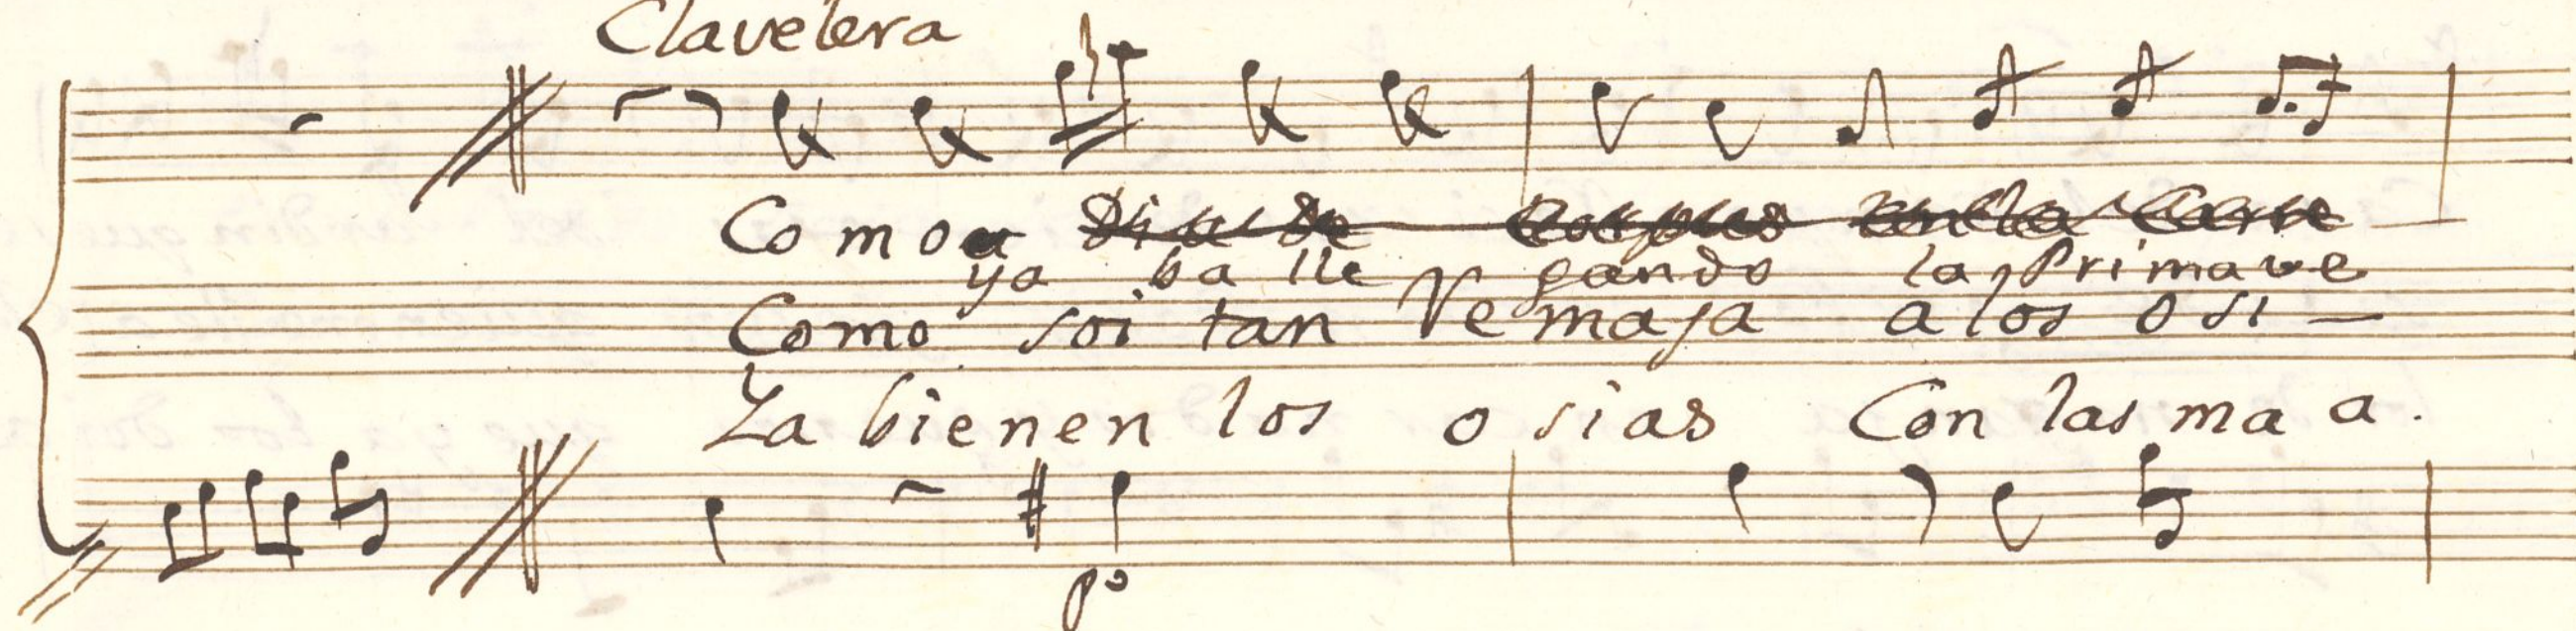 Clavelera
Como a Dia de Corpus en la Corte
ya ba lle gando la Primave
Como soi tan Ve maja a los osi
Ya bienen los osias Con las ma a.
po